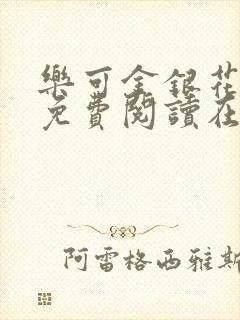 樂可金銀花
免費閱讀在
阿雷格西雅斯